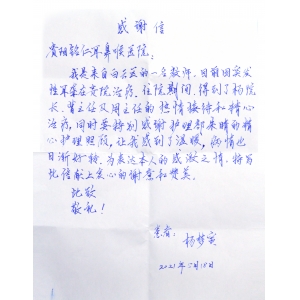 感谢信
贵阳铭仁耳鼻喉医院：
我是来自白云区的一名教师，因前因突发
性耳聋在贵院治疗。住院期间，得到了杨院
长、曾主任及周主任的热情接待和精心
治疗，同时要特别感谢护理部素晴的精
心护理照顾，让我感到了温暖，病情也
日渐好转，为表达本人的感激之情，特写
此信献上衷心的谢意和赞美。
此致
敬礼！
患者：
杨梦寅
2021年